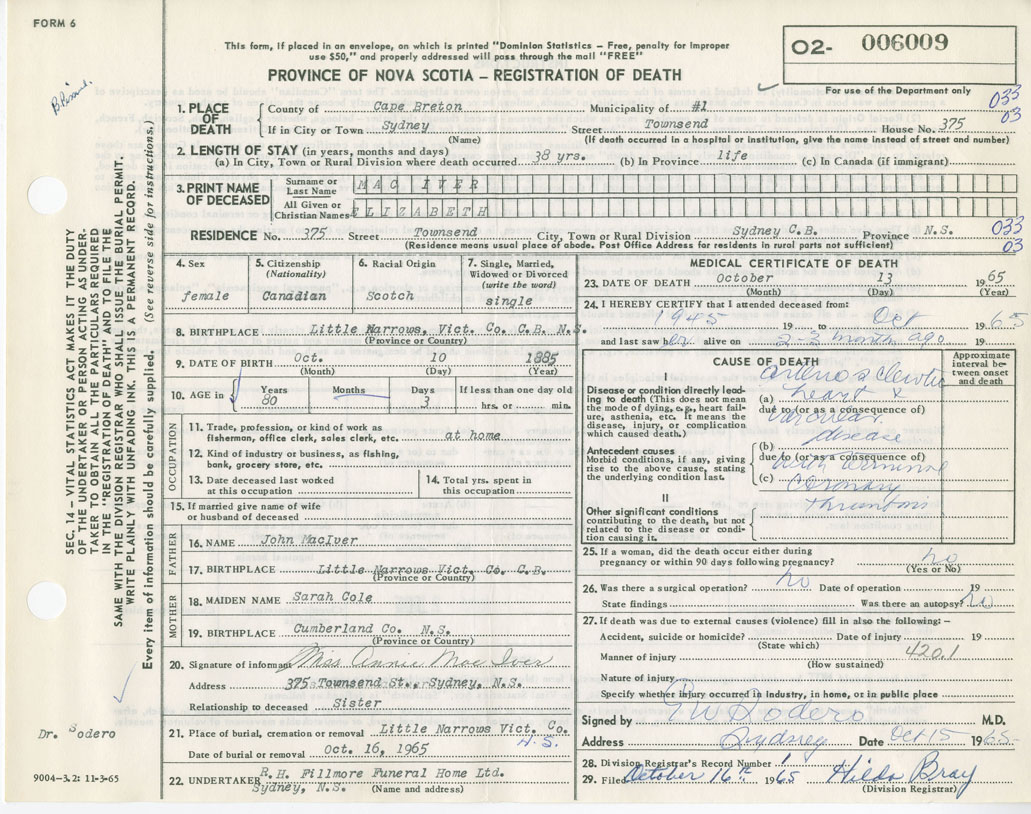 FORM 6
B. 
This form, if placed in an envelope, on which is printed "Dominion Statistics – Free, penalty for improper
use $50," and properly addressed will pass through the mail "FREE"
PROVINCE OF NOVA SCOTIA – REGISTRATION OF DEATH
O2- 006009
For use of the Department only
033
03
1. PLACE OF DEATH { County of Cape Breton Municipality of #1
If in City or Town Sydney Street Townsend House No. 375
(Name) (If death occurred in a hospital or institution, give the name instead of street and number)
2. LENGTH OF STAY (in years, months and days)
(a) In City, Town or Rural Division where death occurred 38 yrs. (b) In Province life (c) In Canada (if immigrant)
3. PRINT NAME OF DECEASED
Surname or Last Name MAC IVER
All Given or Christian Names ELIZABETH
RESIDENCE No. 375 Street Townsend City, Town or Rural Division Sydney C.B. Province N.S.
(Residence means usual place of abode. Post Office Address for residents in rural parts not sufficient)
033
03
4. Sex
female
5. Citizenship
(Nationality)
Canadian
6. Racial Origin
Scotch
7. Single, Married,
Widowed or Divorced
(write the word)
single
8. BIRTHPLACE Little Narrows, Vict. Co. C.B. N.S.
(Province or Country)
9. DATE OF BIRTH Oct. 10 1885
(Month) (Day) (Year)
10. AGE in { Years Months Days If less than one day old
80 3 hrs. or min.
OCCUPATION
11. Trade, profession, or kind of work as
fisherman, office clerk, sales clerk, etc. at home
12. Kind of industry or business, as fishing,
bank, grocery store, etc.
13. Date deceased last worked
at this occupation
14. Total yrs. spent in
this occupation
15. If married give name of wife
or husband of deceased
FATHER
16. NAME John MacIver
17. BIRTHPLACE Little Narrows Vict. Co. C.B.
(Province or Country)
MOTHER
18. MAIDEN NAME Sarah Cole
19. BIRTHPLACE Cumberland Co. N.S.
(Province or Country)
20. Signature of informant Miss Annie Mac Iver
Address 375 Townsend St., Sydney, N.S.
Relationship to deceased Sister
21. Place of burial, cremation or removal Little Narrows Vict. Co.
N.S.
Date of burial or removal Oct. 16, 1965
22. UNDERTAKER R.H. Fillmore Funeral Home Ltd.
Sydney, N.S. (Name and address)
MEDICAL CERTIFICATE OF DEATH
23. DATE OF DEATH October 13 1965
(Month) (Day) (Year)
24. I HEREBY CERTIFY that I attended deceased from:
1945 19 to Oct 1965
and last saw her alive on 2-3 month ago 19
CAUSE OF DEATH
Approximate
interval be-
tween onset
and death
I
Disease or condition directly lead-
ing to death (This does not
mean the mode of dying, e.g., heart fail-
ure, asthenia, etc. It means the
disease, injury, or complication
which caused death.)
Antecedent causes
Morbid conditions, if any, giving
rise to the above cause, stating
the underlying condition last.
arteriosclerotic
(a) heart &
due to (or as a consequence of)
(b) disease
due to (or as a consequence of)
with terminal
(c) coronary
thrombosis
II
Other significant conditions
contributing to the death, but not
related to the disease or condi-
tion causing it.
25. If a woman, did the death occur either during
pregnancy or within 90 days following pregnancy? no
(Yes or No)
26. Was there a surgical operation? no Date of operation 19
State findings Was there an autopsy? no
27. If death was due to external causes (violence) fill in also the following:–
Accident, suicide or homicide? Date of injury 19
(State which)
420.1
Manner of injury
(How sustained)
Nature of injury
Specify whether injury occurred in industry, in home, or in public place
Signed by G W Sodero M.D.
Address Sydney Date Oct 15 1965
28. Division Registrar's Record Number 1
29. Filed October 16th 1965 Hilda Bray
(Division Registrar)
SEC. 14 – VITAL STATISTICS ACT MAKES IT THE DUTY
OF THE UNDERTAKER OR PERSON ACTING AS UNDER-
TAKER TO OBTAIN ALL THE PARTICULARS REQUIRED
IN THE "REGISTRATION OF DEATH" AND TO FILE THE
SAME WITH THE DIVISION REGISTRAR WHO SHALL ISSUE THE BURIAL PERMIT.
WRITE PLAINLY WITH UNFADING INK. THIS IS A PERMANENT RECORD.
Every item of information should be carefully supplied. (See reverse side for instructions.)
Dr. Sodero
9004-3.2: 11-3-65